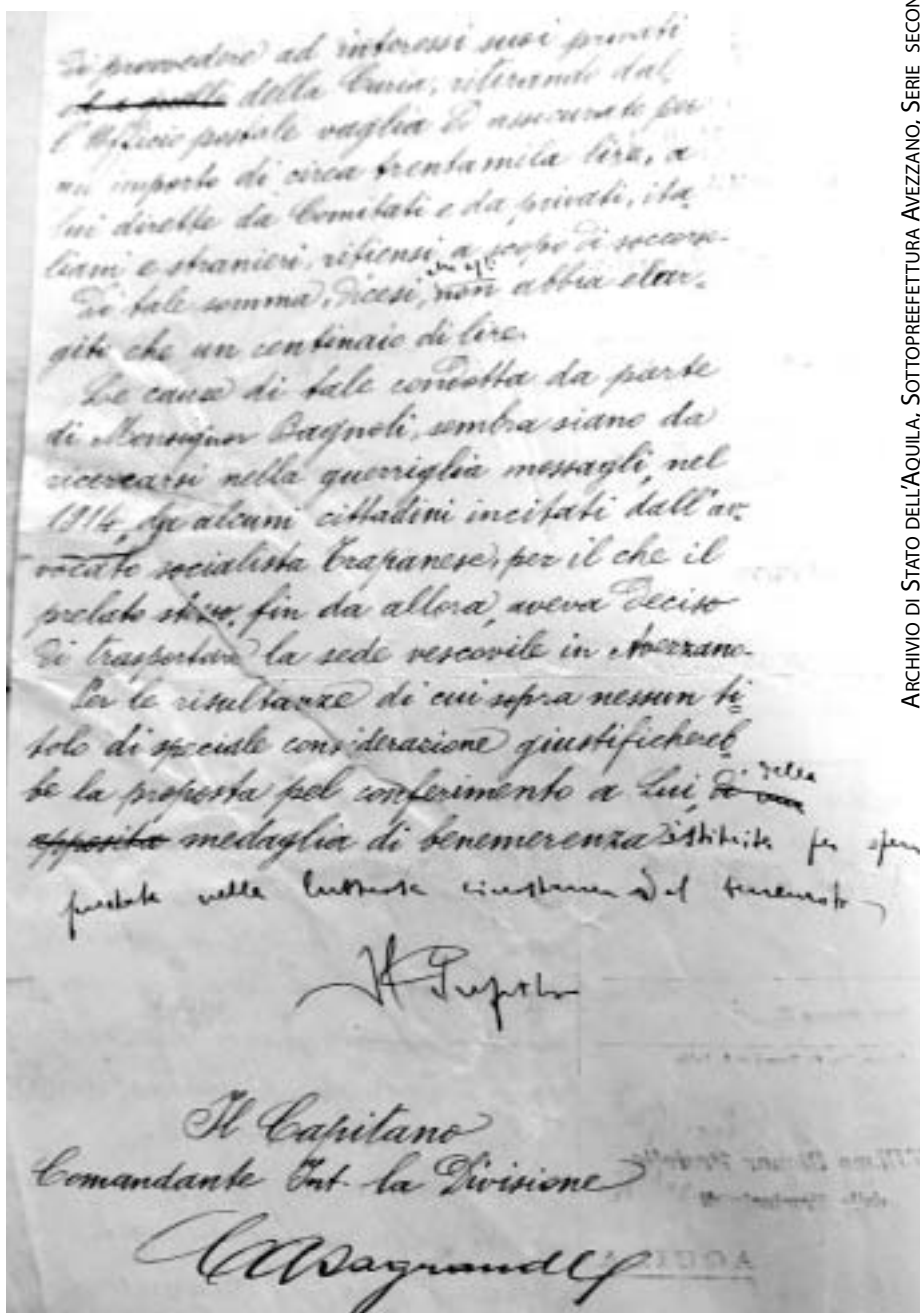 di provvedere ad interessi suoi privati
ed a quelli della Curia, ritirando dal,
l'Ufficio postale vaglia ed assicurate per
un importo di circa trentamila lire, a
lui dirette da Comitati e da privati, ita,
liani e stranieri, ritiensi a scopo di soccorso.
Di tale somma, dicesi, che egli non abbia elar,
gito che un centinaio di lire.
Le cause di tale condotta da parte
di Monsignor Bagnoli, sembra siano da
ricercarsi nella guerriglia mossagli, nel
1914, da alcuni cittadini incitati dall'av,
vocato socialista Trapanese, per il che il
prelato stesso, fin da allora, aveva deciso
di trasportare la sede vescovile in Avezzano.
Per le risultanze di cui sopra nessun ti
tolo di speciale considerazione giustifichereb
be la proposta pel conferimento a Lui, di una della
apposita medaglia di benemerenza istituita per opera
prestata nella luttuosa circostanza del terremoto
Il Prefetto
Il Capitano
Comandante Int. la Divisione
Casagrande
ARCHIVIO DI STATO DELL'AQUILA, SOTTOPREEFETTURA AVEZZANO, SERIE SECON